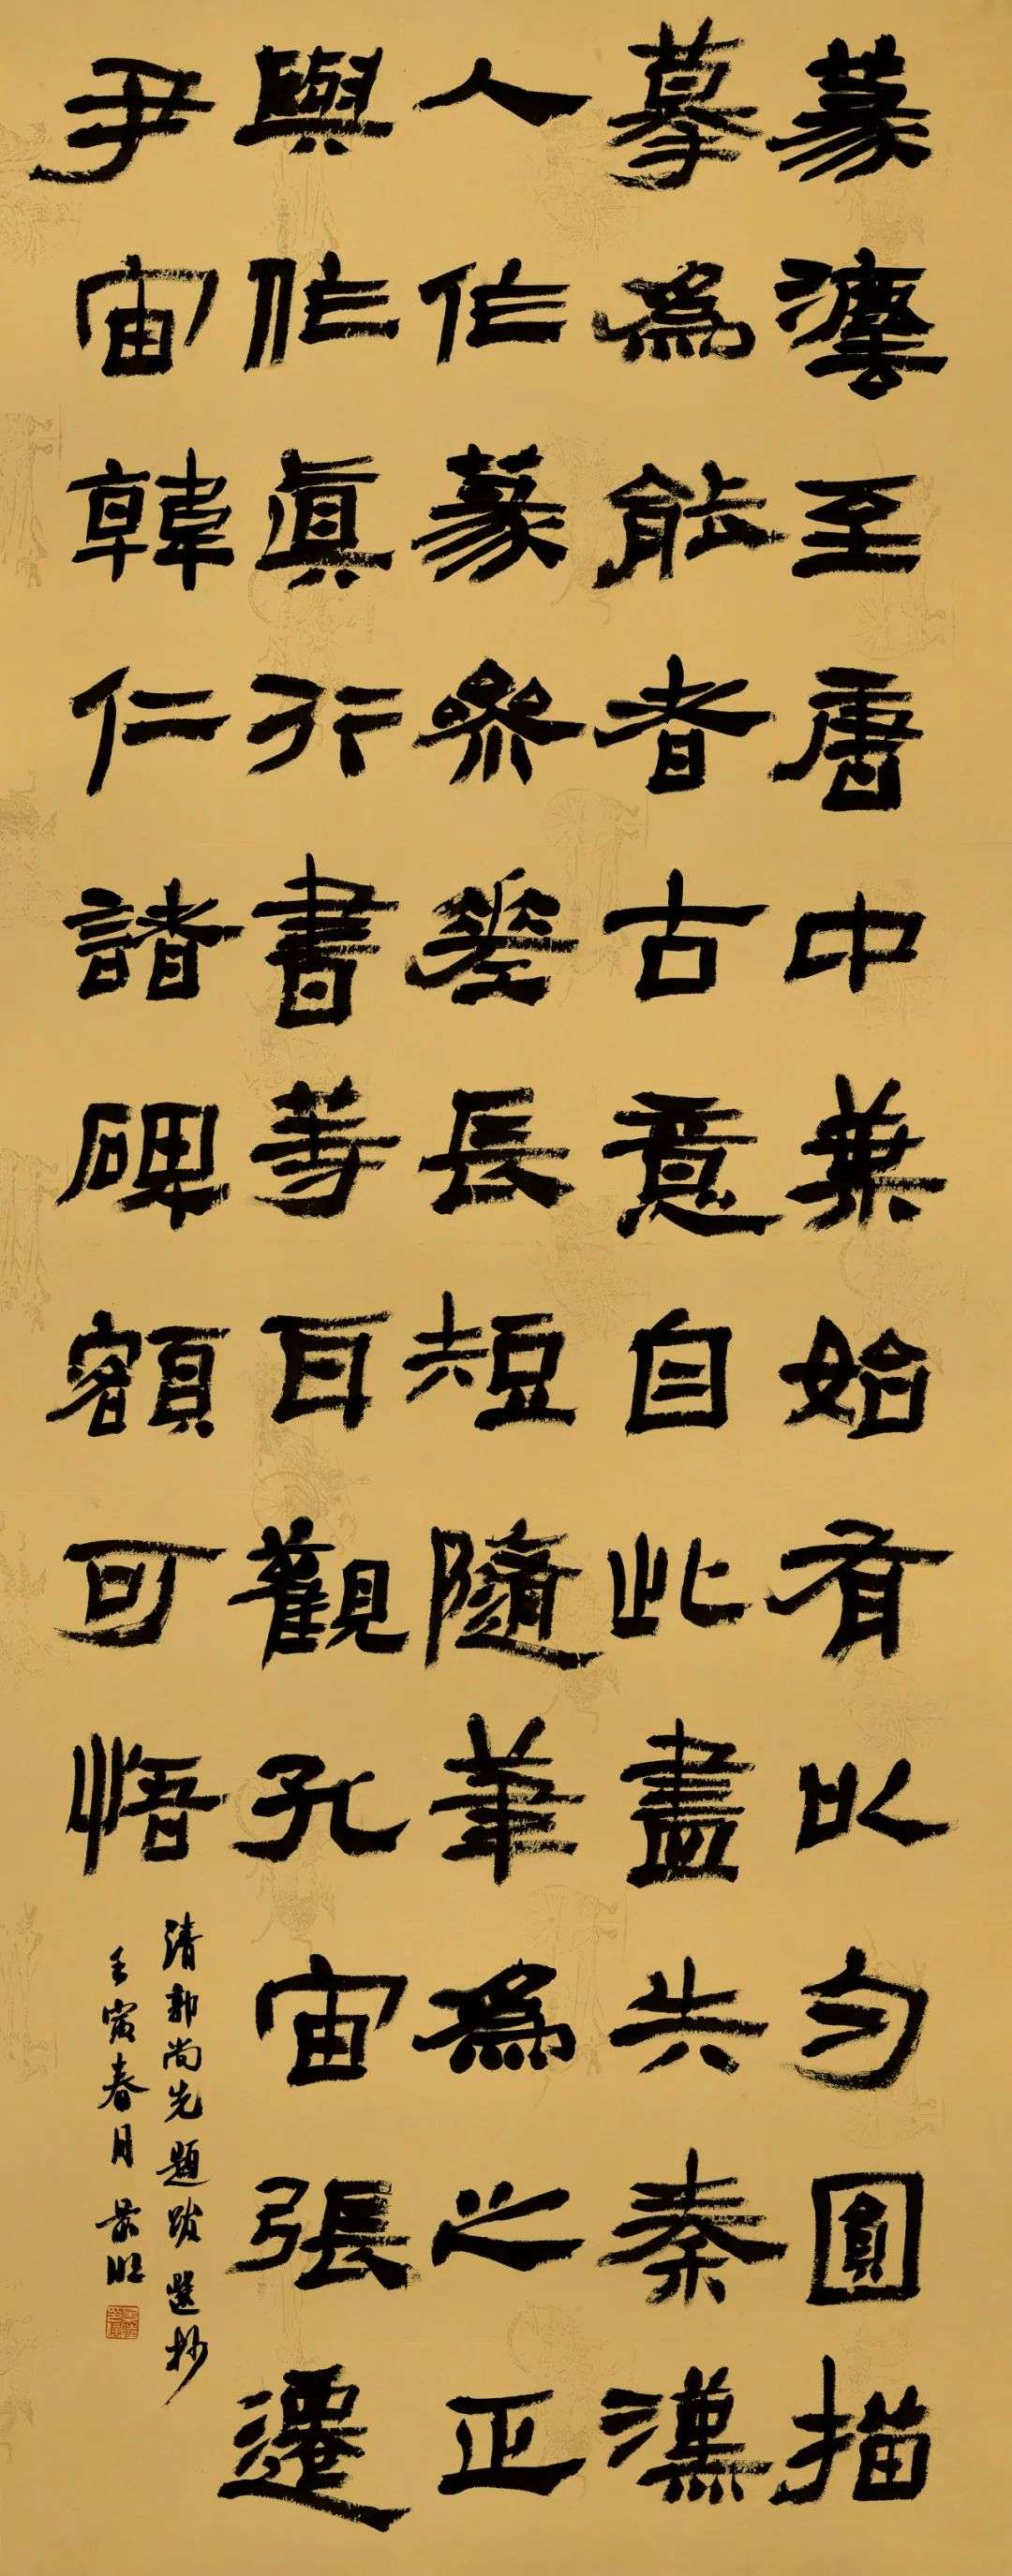 篆灋至唐中葉始有以勻圓描
摹為能者古意自此盡失秦漢
人作篆參差長短隨筆為之正
與作真行書等耳觀孔宙張遷
尹宙韓仁諸碑額可悟
清郭尚先題跋選抄
壬寅春月